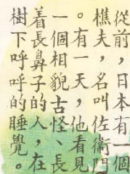 從前，日本有一個
樵夫，名叫佐衛門
。有一天，他看見
一個相貌古怪、長
着長鼻子的人，在
樹下呼呼的睡覺。